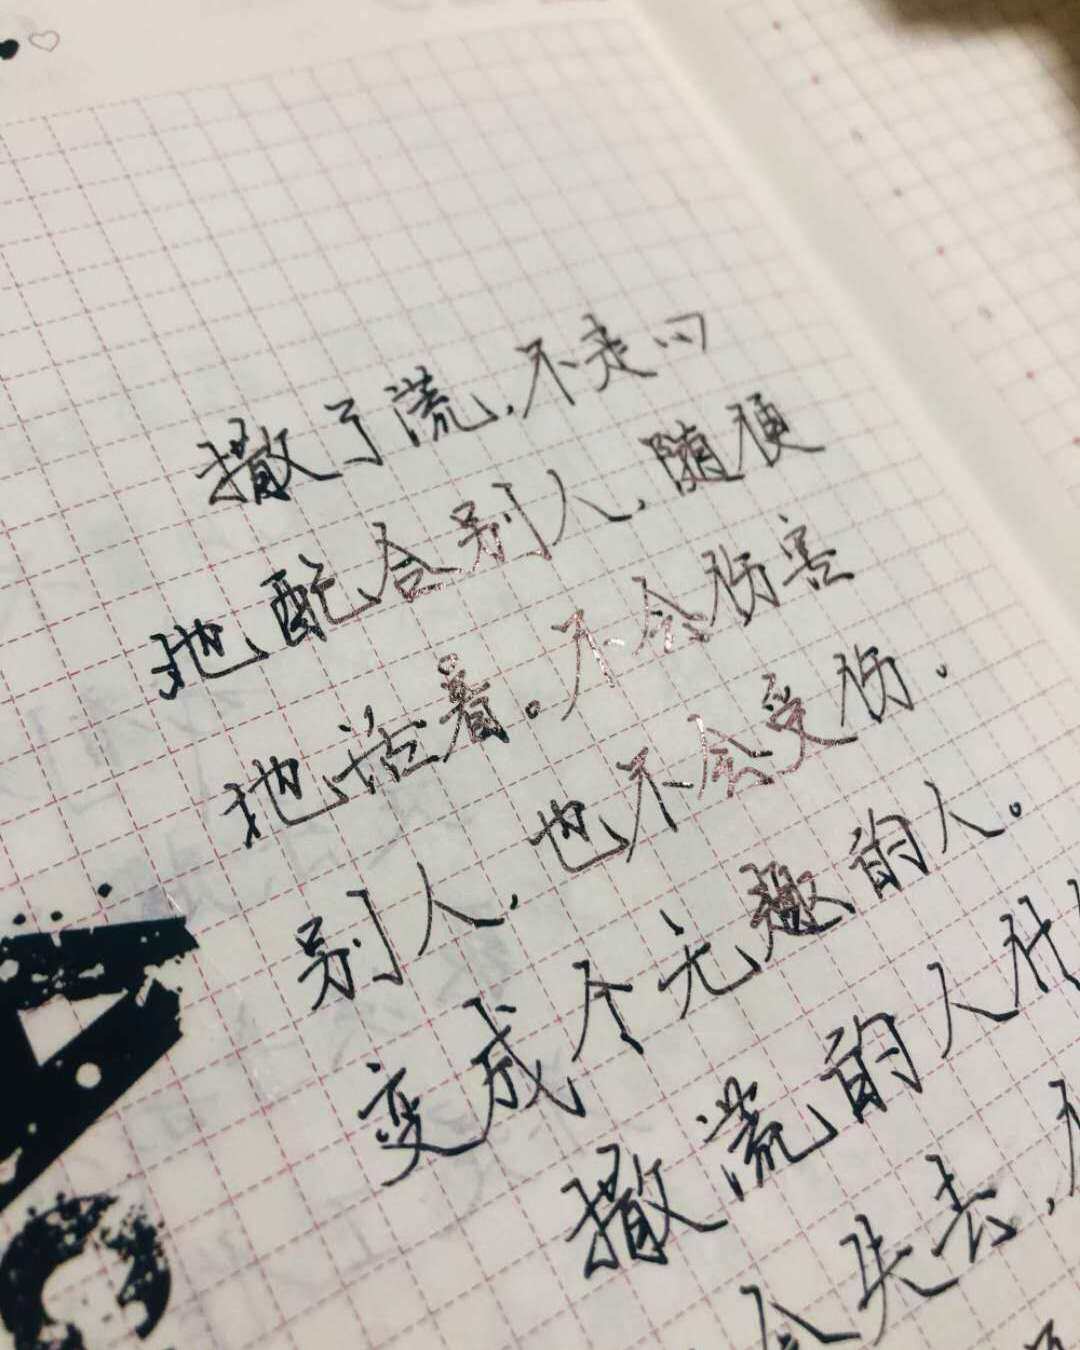 撒了谎,不走心
地配合别人,随便
地活着。不会伤害
别人,也不会受伤.
变成个无趣的人。
撒谎的人什
会失去,